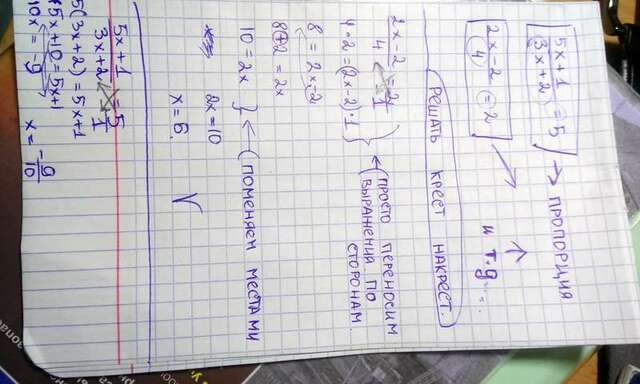 5x+1 / 3x+2 = 5 → ПРОПОРЦИЯ
2x-2 / 4 = 2 → и т.д...
РЕШАТЬ КРЕСТ НАКРЕСТ.
2x-2 / 4 = 2 / 1
4·2=(2x-2)·1
8=2x-2
(ПРОСТО ПЕРЕНОСИМ
ВЫРАЖЕНИЯ ПО
СТОРОНАМ.
8+2=2x
10=2x } ← (ПОМЕНЯЕМ МЕСТАМИ
2x=10
x=5.
5x+1 / 3x+2 = 5 / 1
5(3x+2)=5x+1
15x+10=5x+1
10x=-9 x= -9/10